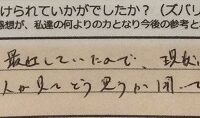 けられていかがでしたか？（ズバリ
感想が、私達の何よりの力となり今後の参考と
最近していたので、現在
人が見てどう思うか聞いて